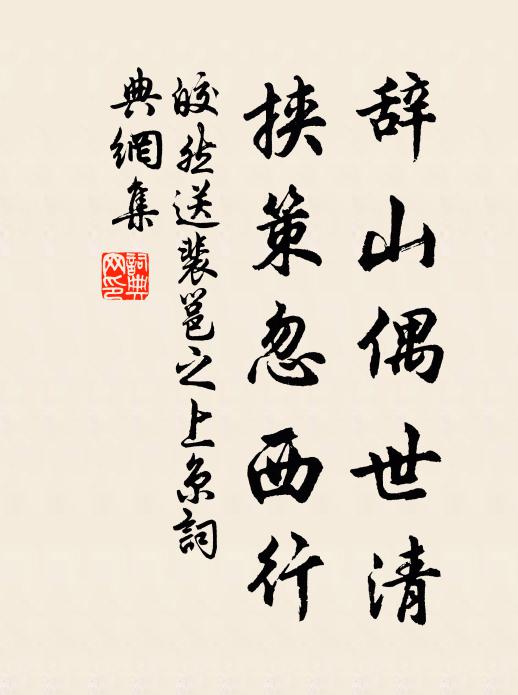 辞山偶世清
挟策忽西行
皎然送裴邕之上京詞
典網集
詞典
网印